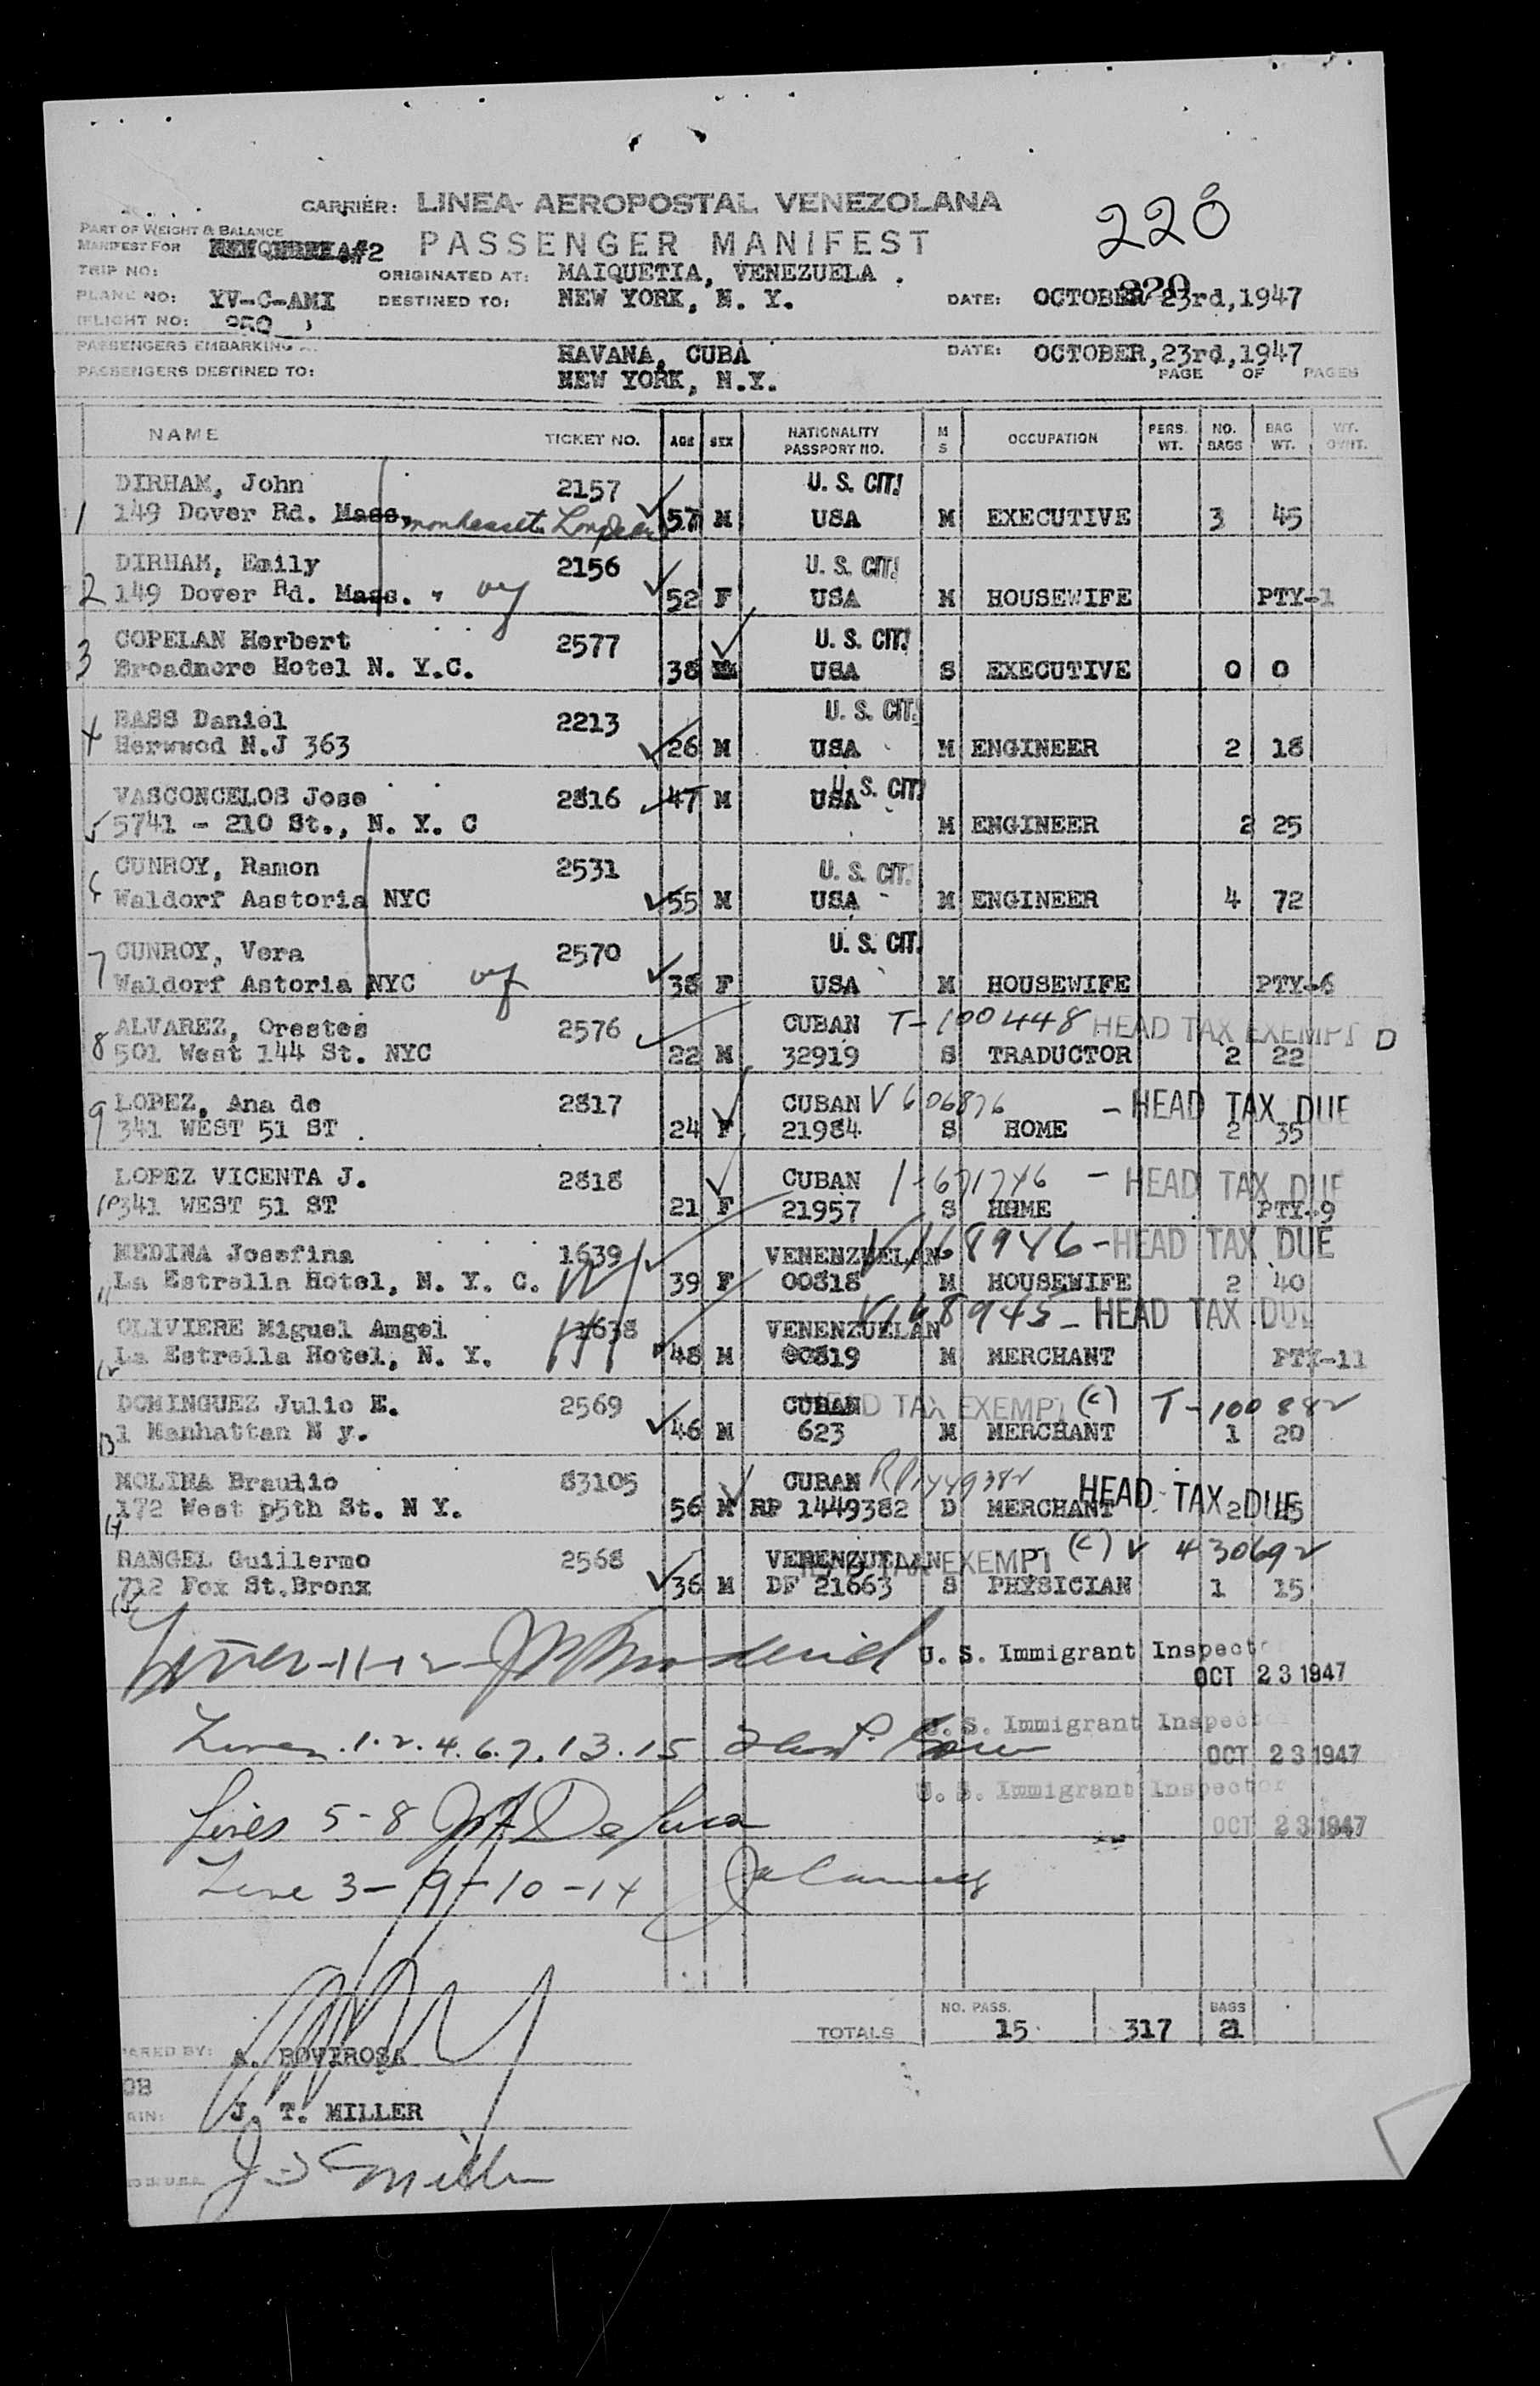 CARRIER: LINEA AEROPOSTAL VENEZOLANA
228
PART OF WEIGHT & BALANCE
MANIFEST FOR #2 PASSENGER MANIFEST
TRIP NO: ORIGINATED AT: MAIQUETIA, VENEZUELA .
PLANE NO: YV-C-AMI DESTINED TO: NEW YORK, N. Y. DATE: OCTOBER 23rd, 1947
FLIGHT NO:
PASSENGERS EMBARKING HAVANA, CUBA DATE: OCTOBER, 23rd, 1947
PASSENGERS DESTINED TO: NEW YORK, N.Y. PAGE OF PAGES
NAME TICKET NO. AGE SEX NATIONALITY PASSPORT NO. M S OCCUPATION PERS. WT. NO. BAGS BAG WT. WT. OVHT.
DIRHAM, John 2157 U. S. CIT.
1 149 Dover Rd. Mass. 57 M USA M EXECUTIVE 3 45
DIRHAM, Emily 2156 U. S. CIT.
2 149 Dover Rd. Mass. 52 F USA M HOUSEWIFE PTY-1
COPELAN Herbert 2577 U. S. CIT.
3 Broadmore Hotel N. Y.C. 38 USA S EXECUTIVE 0 0
BASS Daniel 2213 U. S. CIT.
4 Herwwod N.J 363 26 M USA M ENGINEER 2 18
VASCONCELOS Jose 2816 47 M USA U. S. CIT.
5 5741 - 210 St., N. Y. C M ENGINEER 2 25
CUNROY, Ramon 2531 U. S. CIT.
6 Waldorf Aastoria NYC 55 M USA M ENGINEER 4 72
CUNROY, Vera 2570 U. S. CIT.
7 Waldorf Astoria NYC 38 F USA M HOUSEWIFE PTY-6
ALVAREZ, Orestes 2576 CUBAN T-100448 HEAD TAX EXEMPT D
8 501 West 144 St. NYC 22 M 32919 S TRADUCTOR 2 22
LOPEZ, Ana de 2817 CUBAN V 606876 - HEAD TAX DUE
9 341 WEST 51 ST . 24 F 21984 S HOME 2 35
LOPEZ VICENTA J. 2818 CUBAN - HEAD TAX DUE
10 341 WEST 51 ST 21 F 21957 S HOME PTY-9
MEDINA Josefina 1639 VENENZUELAN V168946 - HEAD TAX DUE
11 La Estrella Hotel, N. Y. C. 39 F 00818 M HOUSEWIFE 2 40
OLIVIERE Miguel Amgel 1638 VENENZUELAN V168945 - HEAD TAX DUE
12 La Estrella Hotel, N. Y. 48 M 00819 M MERCHANT PTY-11
DOMINGUEZ Julio E. 2569 CUBAN HEAD TAX EXEMPT (c) T-100882
13 1 Manhattan N y. 46 M 623 M MERCHANT 1 20
MOLINA Braulio 83105 CUBAN RP1449382 HEAD TAX DUE
14 172 West p5th St. N Y. 56 M RP 1449382 D MERCHANT 2
RANGEL Guillermo 2568 HEAD TAX EXEMPT (c) V 430692
15 712 Fox St.Bronx 36 M DF 21663 S PHYSICIAN 1 15
-11-12- U. S. Immigrant Inspector
OCT 23 1947
Lines 1. 2. 4. 6. 7. 13. 15 U. S. Immigrant Inspector
OCT 23 1947
Lines 5-8 U. S. Immigrant Inspector
OCT 23 1947
Line 3-9-10-14
TOTALS NO. PASS. 15 317 BAGS 21
ARED BY: A. ROVIROSA
OB
AIN: J. T. MILLER
J T Miller